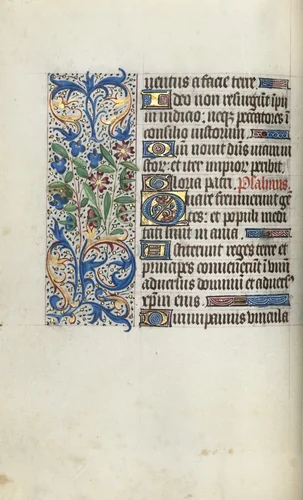 uentus a facie terre.
Ideo non resurgūt ipii
in iudicio: neqȝ peccatores ī
consilio iustorum.
Qm̄ nouit dn̄s uiam iu
stor: et iter impior peribit.
Gloria patri. Psalmus.
Quare fremuerunt gē
tes: et populi medi
tati sunt in ania.
Astiterunt reges terre et
principes conuenerūt ī vnū
aduersus dominū et aduersꝰ
xp̄m eius.
Dirumpamus vincula